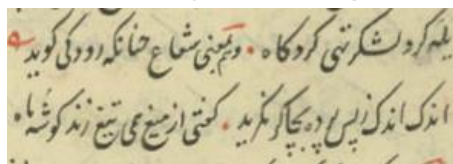 یله کرد لشکر تهی کرد کاه • وبمعنی شعاع چنانکه رودکی کوید
اندک اندک زپس پرده بچاکر نکرید • کفتی از میغ همی تیغ زند کوشهٔ ماه